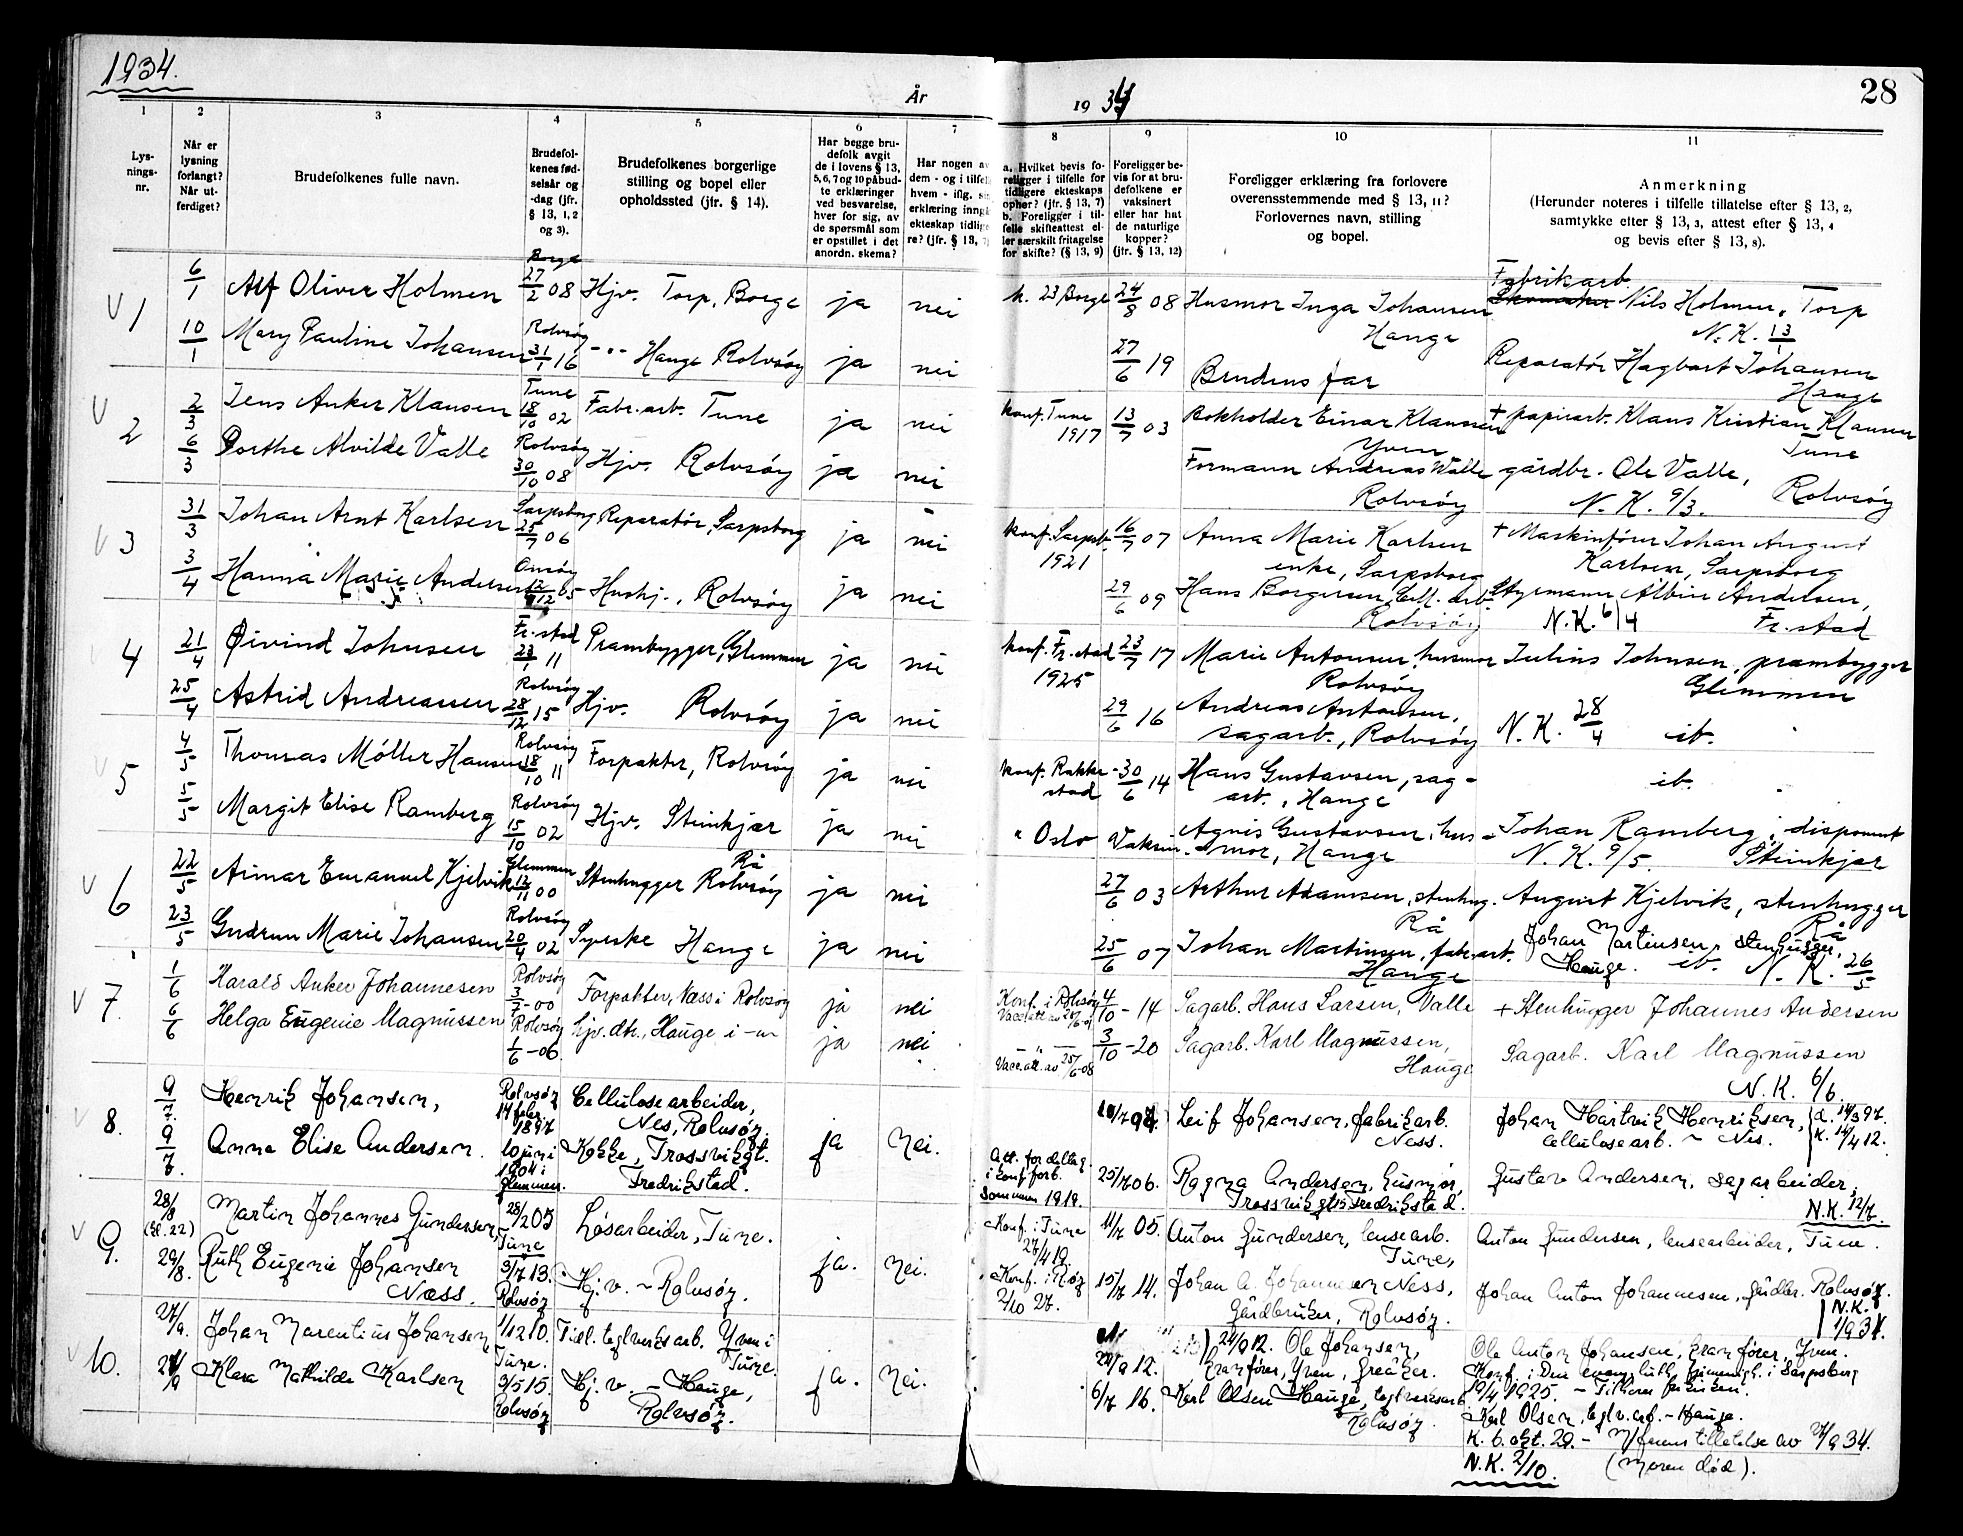 1934.
År
1934
28
1
2
3
4
5
6
7
8
9
10
11
Lys-
nings-
nr.
Når er
lysning
forlangt?
Når ut-
ferdiget?
Brudefolkenes fulle navn.
Brudefol-
kenes fød-
selsår og
-dag (jfr.
§ 13, 1, 2
og 3).
Brudefolkenes borgerlige
stilling og bopel eller
opholdssted (jfr. § 14).
Har begge bru-
defolk avgit
de i lovens § 13,
5, 6, 7 og 10 påbud-
te erklæringer
ved besvarelse,
hver for sig, av
de spørsmål som
er opstillet i det
anordn. skema?
Har nogen av
dem - og i tilfelle
hvem - iflg.
erklæring inngå
ekteskap tidlige-
re? (jfr. § 13, 7)
a. Hvilket bevis fo-
religger i tilfelle for
tidligere ekteskaps
ophør? (jfr. § 13, 7)
b. Foreligger i til-
felle skifteattest el-
ler særskilt fritagelse
for skifte? (§ 13, 9)
Foreligger be-
vis for at bru-
defolkene er
vaksinert
eller har hat
de naturlige
kopper?
(jfr. § 13, 12)
Foreligger erklæring fra forlovere
overensstemmende med § 13, 11?
Forlovernes navn, stilling
og bopel.
Anmerkning
(Herunder noteres i tilfelle tillatelse efter § 13, 2,
samtykke efter § 13, 3, attest efter § 13, 4
og bevis efter § 13, 8).
V 1 6/1 Alf Oliver Holmen Borge 27/2 08 Hjv. Torp, Borge ja nei k. 23 Borge 24/8 08 Husmor Inga Johansen Hauge Fabrikarb. Nils Holmen, Torp
N.K. 13/1
10/1 Mary Pauline Johansen Rolvsøy 31/1 16 -"- Hauge Rolvsøy ja nei 27/6 19 Brudens far Reparatør Hagbart Johansen
Hauge
V 2 2/3 Jens Anker Klausen Tune 18/10 02 Fabr.arb. Tune ja nei konf. Tune 1917 13/7 03 Bokholder Einar Klausen Yven + papirarb. Klaus Kristian Klausen
Tune
6/3 Dorthe Alvilde Valle Rolvsøy 30/10 08 Hjv. Rolvsøy ja nei Formann Andreas Valle Rolvsøy gårdbr. Ole Valle, Rolvsøy
N.K. 9/3.
V 3 31/3 Johan Arnt Karlsen Sarpsborg 25/7 06 Reparatør, Sarpsborg ja nei konf. Sarpsb. 1921 16/7 07 Anna Marie Karlsen enke, Sarpsborg + Maskinfører Johan August
Karlsen, Sarpsborg
3/4 Hanna Marie Andersen Onsøy Hushj., Rolvsøy ja nei 29/6 09 Hans Borgersen, Cell. arb. Rolvsøy Styrmann Albin Andersen,
N.K. 6/4 Fr.stad
4 21/4 Øivind Johnsen Fr.stad 23/1 11 Prambygger, Glemmen ja nei konf. Fr.stad 1925 23/7 17 Marie Antonsen, husmor Rolvsøy Julius Johnsen, prambygger
Glemmen
25/4 Astrid Andreassen Rolvsøy 28/12 15 Hjv. Rolvsøy ja nei 29/6 16 Andreas Antonsen, sagarb., Rolvsøy N.K. 28/4 ib.
5 4/5 Thomas Møller Hansen Rolvsøy 18/10 11 Forpakter, Rolvsøy ja nei konf. Rakke-stad 30/6 14 Hans Gustavsen, sag-arb., Hauge ib.
5/5 Margit Elise Ramberg Rolvsøy 15/10 02 Hjv. Steinkjær ja nei " Oslo Vaksin. Agnis Gustavsen, hus-mor, Hauge Johan Ramberg, disponent
N.K. 9/5. Steinkjær
V 6 22/5 Arinar Emanuel Kjelvik Glemmen 12/11 00 Stenhugger Rå Rolvsøy ja nei 27/6 03 Arthur Adamsen, stenhug. Rå August Kjelvik, stenhugger
Rå
23/5 Gudrun Marie Johansen Rolvsøy 20/4 02 Syerske Hauge ja nei 25/6 07 Johan Martinsen, fabr.arb. Hauge Johan Martinsen, stenhugger,
Hauge. ib. N.K. 26/5
V 7. 1/6 Harald Anker Johannesen Rolvsøy 3/7-00 Forpakter, Næss i Rolvsøy ja nei Konf. i Rolvsøy 4/10-14 Sagarb. Hans Larsen, Valle + Stenhugger Johannes Andersen
6/6 Helga Eugenie Magnussen Rolvsøy 1/6-06. hjv. dtr., Hauge i -"- ja nei -"- Vacc.att. av 25/6-08 3/10-20 Sagarb. Karl Magnussen, Hauge Sagarb. Karl Magnussen
N.K. 6/6.
V 8. 9/7. Henrik Johansen, Rolvsøy 14 febr. 1897 Cellulosearbeider, Nes, Rolvsøy. ja nei. Leif Johansen, fabrikarb. Ness. Johan Hartvik Henriksen, d. 14/3 97.
cellulosearb. ~ Nes. K. 14/4 12.
9/7. Anna Elise Andersen. 10 juni 1904 i Glemmen. Kokke, Trosvikgt. Fredrikstad. Att. for deltag. i konf.forb. sommeren 1919. 25/7 06. Ragna Andersen, husmor, Trosvikgt. 15 Fredrikstad. Gustav Andersen, sagarbeider,
N.K. 12/7.
V 9. 28/8 (kl. 22) Martin Johannes Gundersen 28/2 05 Tune Løsarbeider, Tune. ja. nei. Konf. i Tune 27/4 19. 11/7 05. Anton Gundersen, lensearb. Tune, Anton Gundersen, lensearbeider, Tune.
29/8. Ruth Eugenie Johansen Næss. 3/7 13. Rolvsøy Hj.v. ~ Rolvsøy. Konf. i R.øy 2/10 27. 15/7 14. Johan A. Johannesen Ness, Gårdbruker, Rolvsøy. Johan Anton Johannesen, gårdbr. Rolvsøy.
N.K. 1/9 34.
V 10. 27/9. Johan Marentius Johansen 1/12 10. Tune. Tidl. teglverksarb. Yven i Tune. ja. nei. 24/9 12. 24/9 12. Ole Johansen, kranfører, Yven, Greåker. Ole Anton Johansen, kranfører, Yven.
Konf. i Den evang. luth. frimenigh. i Sarpsborg
19/4 1925. -
27/9 Klara Mathilde Karlsen 9/5 15. Rolvsøy Hj.v. - Hauge, Rolvsøy. 6/7 16. Karl Olsen Hauge, teglverksarb. Rolvsøy. Karl Olsen, teglv.arb. - Hauge.
K. 6. okt. 29. - M/farens tilletelse av 27/9 34.
N.K. 2/10. (Moren død).